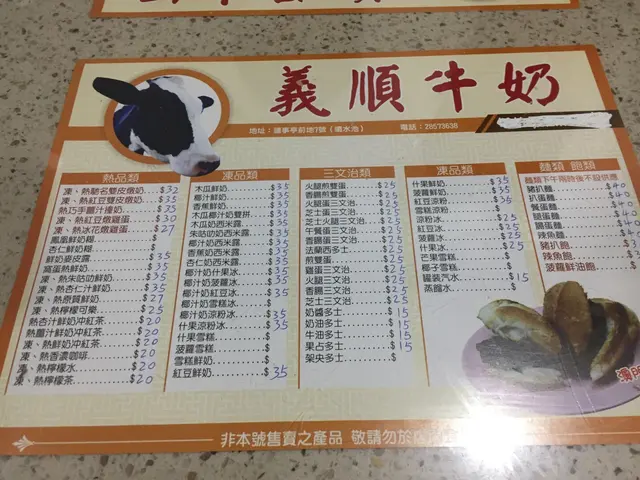 義順牛奶
地址：議事亭前地7號（噴水池）
電話：28573638
熱品類
凍、熱馳名雙皮燉奶 $32
凍、熱紅豆雙皮燉奶 $35
熱巧手薑汁撞奶 $35
凍、熱紅豆燉雞蛋 $30
凍、熱冰花燉雞蛋 $27
鳳凰鮮奶糊 $
杏仁鮮奶糊 $
鮮奶麥皮露 $35
窩蛋熱鮮奶 $35
凍、熱朱咕叻鮮奶 $35
凍、熱杏仁汁鮮奶 $35
凍、熱原質鮮奶 $27
凍、熱檸檬可樂 $25
熱杏汁鮮奶冲紅茶 $20
熱薑汁鮮奶冲紅茶 $20
凍、熱鮮奶冲紅茶 $20
凍、熱香濃咖啡 $20
凍、熱檸檬水 $20
凍、熱檸檬茶 $20
凍品類
木瓜鮮奶 $35
椰汁鮮奶 $35
香蕉鮮奶 $35
木瓜椰汁奶雙拼 $35
木瓜奶西米露 $35
朱咕叻奶西米露 $35
椰汁奶西米露 $35
香蕉奶西米露 $35
杏仁奶西米露 $35
椰汁奶什果冰 $35
椰汁奶菠蘿冰 $35
椰汁奶紅豆冰 $35
椰汁奶雪糕冰 $
椰汁奶涼粉冰 $35
什果涼粉冰 $35
什果雪糕 $
菠蘿雪糕 $
鮮奶雪糕 $
紅豆鮮奶 $35
三文治類
火腿煎雙蛋 $25
香腸煎雙蛋 $25
菠蘿三文治 $25
芝士蛋三文治 $25
芝士火腿三文治 $25
午餐蛋三文治 $25
香腸蛋三文治 $25
法蘭西多士 $25
煎雙蛋 $25
雞蛋三文治 $25
火腿三文治 $25
香腸三文治 $25
芝士三文治 $25
奶醬多士 $15
奶油多士 $15
牛油多士 $15
果占多士 $15
架央多士 $
凍品類
什果鮮奶 $35
菠蘿鮮奶 $35
紅豆涼粉 $35
雪糕涼粉 $
涼粉冰 $25
紅豆冰 $25
菠蘿冰 $25
什果冰 $25
芒果雪糕 $
椰子雪糕 $
罐裝汽水 $15
蒸餾水 $15
麵類 飽類
麵類下午兩時後不設供應
豬扒麵
叭蛋麵
餐蛋麵
腿蛋麵
腸蛋麵
辣魚麵
豬扒飽
辣魚飽
菠蘿鮮油飽
非本號售賣之產品 敬請勿於